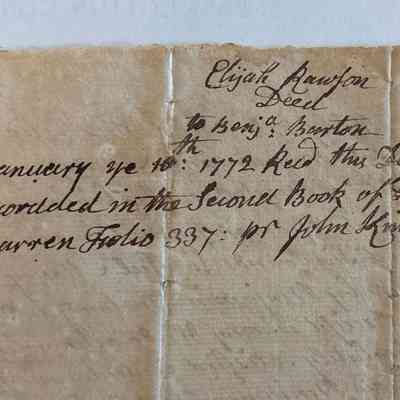 Elijah Rawson
Deed
to Benja: Barton
anuary ye 10th: 1772 Recd this
cordded in the Second Book of
arren Folio 337: pr John